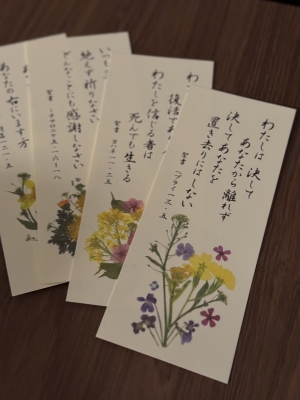 わたしは 決して
あなたから 離れず
決して あなたを
置き去りにはしない
聖書 ヘブライ一三・五
わた
復活であ
わたしを信じる者は
死んでも生きる
聖書 ヨハネ一一・二五
いつも
絶えず祈りなさい
どんなことにも感謝しなさい
聖書 一テサロニケ五・一六~一八
あなたの右にいます方